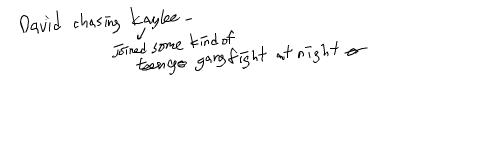 David chasing Kaylee -
joined some kind of
gang fight at night